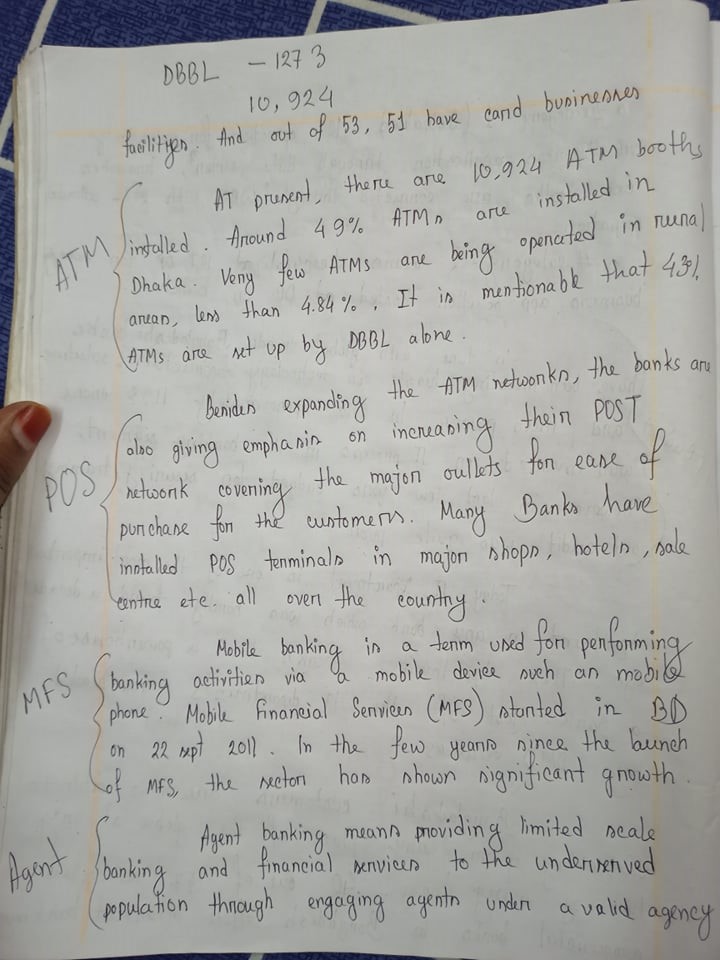 DBBL - 1273
10,924
facilitiyes. And out of 53, 51 have card businesses
ATM
AT present, there are 10,924 ATM booths
installed. Around 49% ATMs are installed in
Dhaka. Very few ATMs are being operated in rural
areas, less than 4.84%. It is mentionable that 43%
ATMs are set up by DBBL alone.
POS
Besides expanding the ATM networks, the banks are
also giving emphasis on increasing their POST
network covering the major oullets for ease of
purchase for the customers. Many Banks have
installed POS terminals in major shops, hotels, sale
centre etc. all over the country.
MFS
Mobile banking is a term used for performing
banking activities via a mobile device such as mobile
phone. Mobile Financial Services (MFS) started in BD
on 22 sept 2011. In the few years since the launch
of MFS, the sector has shown significant growth.
Agent
Agent banking means providing limited scale
banking and financial services to the underserved
population through engaging agents under a valid agency